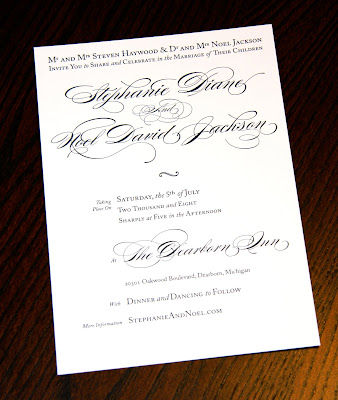 Mr and Mrs Steven Haywood & Dr and Mrs Noel Jackson
Invite You to Share and Celebrate in the Marriage of Their Children
Stephanie Diane
and
Noel David Jackson
Taking Place On
Saturday, the 5th of July
Two Thousand and Eight
Sharply at Five in the Afternoon
At The Dearborn Inn
20301 Oakwood Boulevard, Dearborn, Michigan
With Dinner and Dancing to Follow
More Information StephanieAndNoel.com